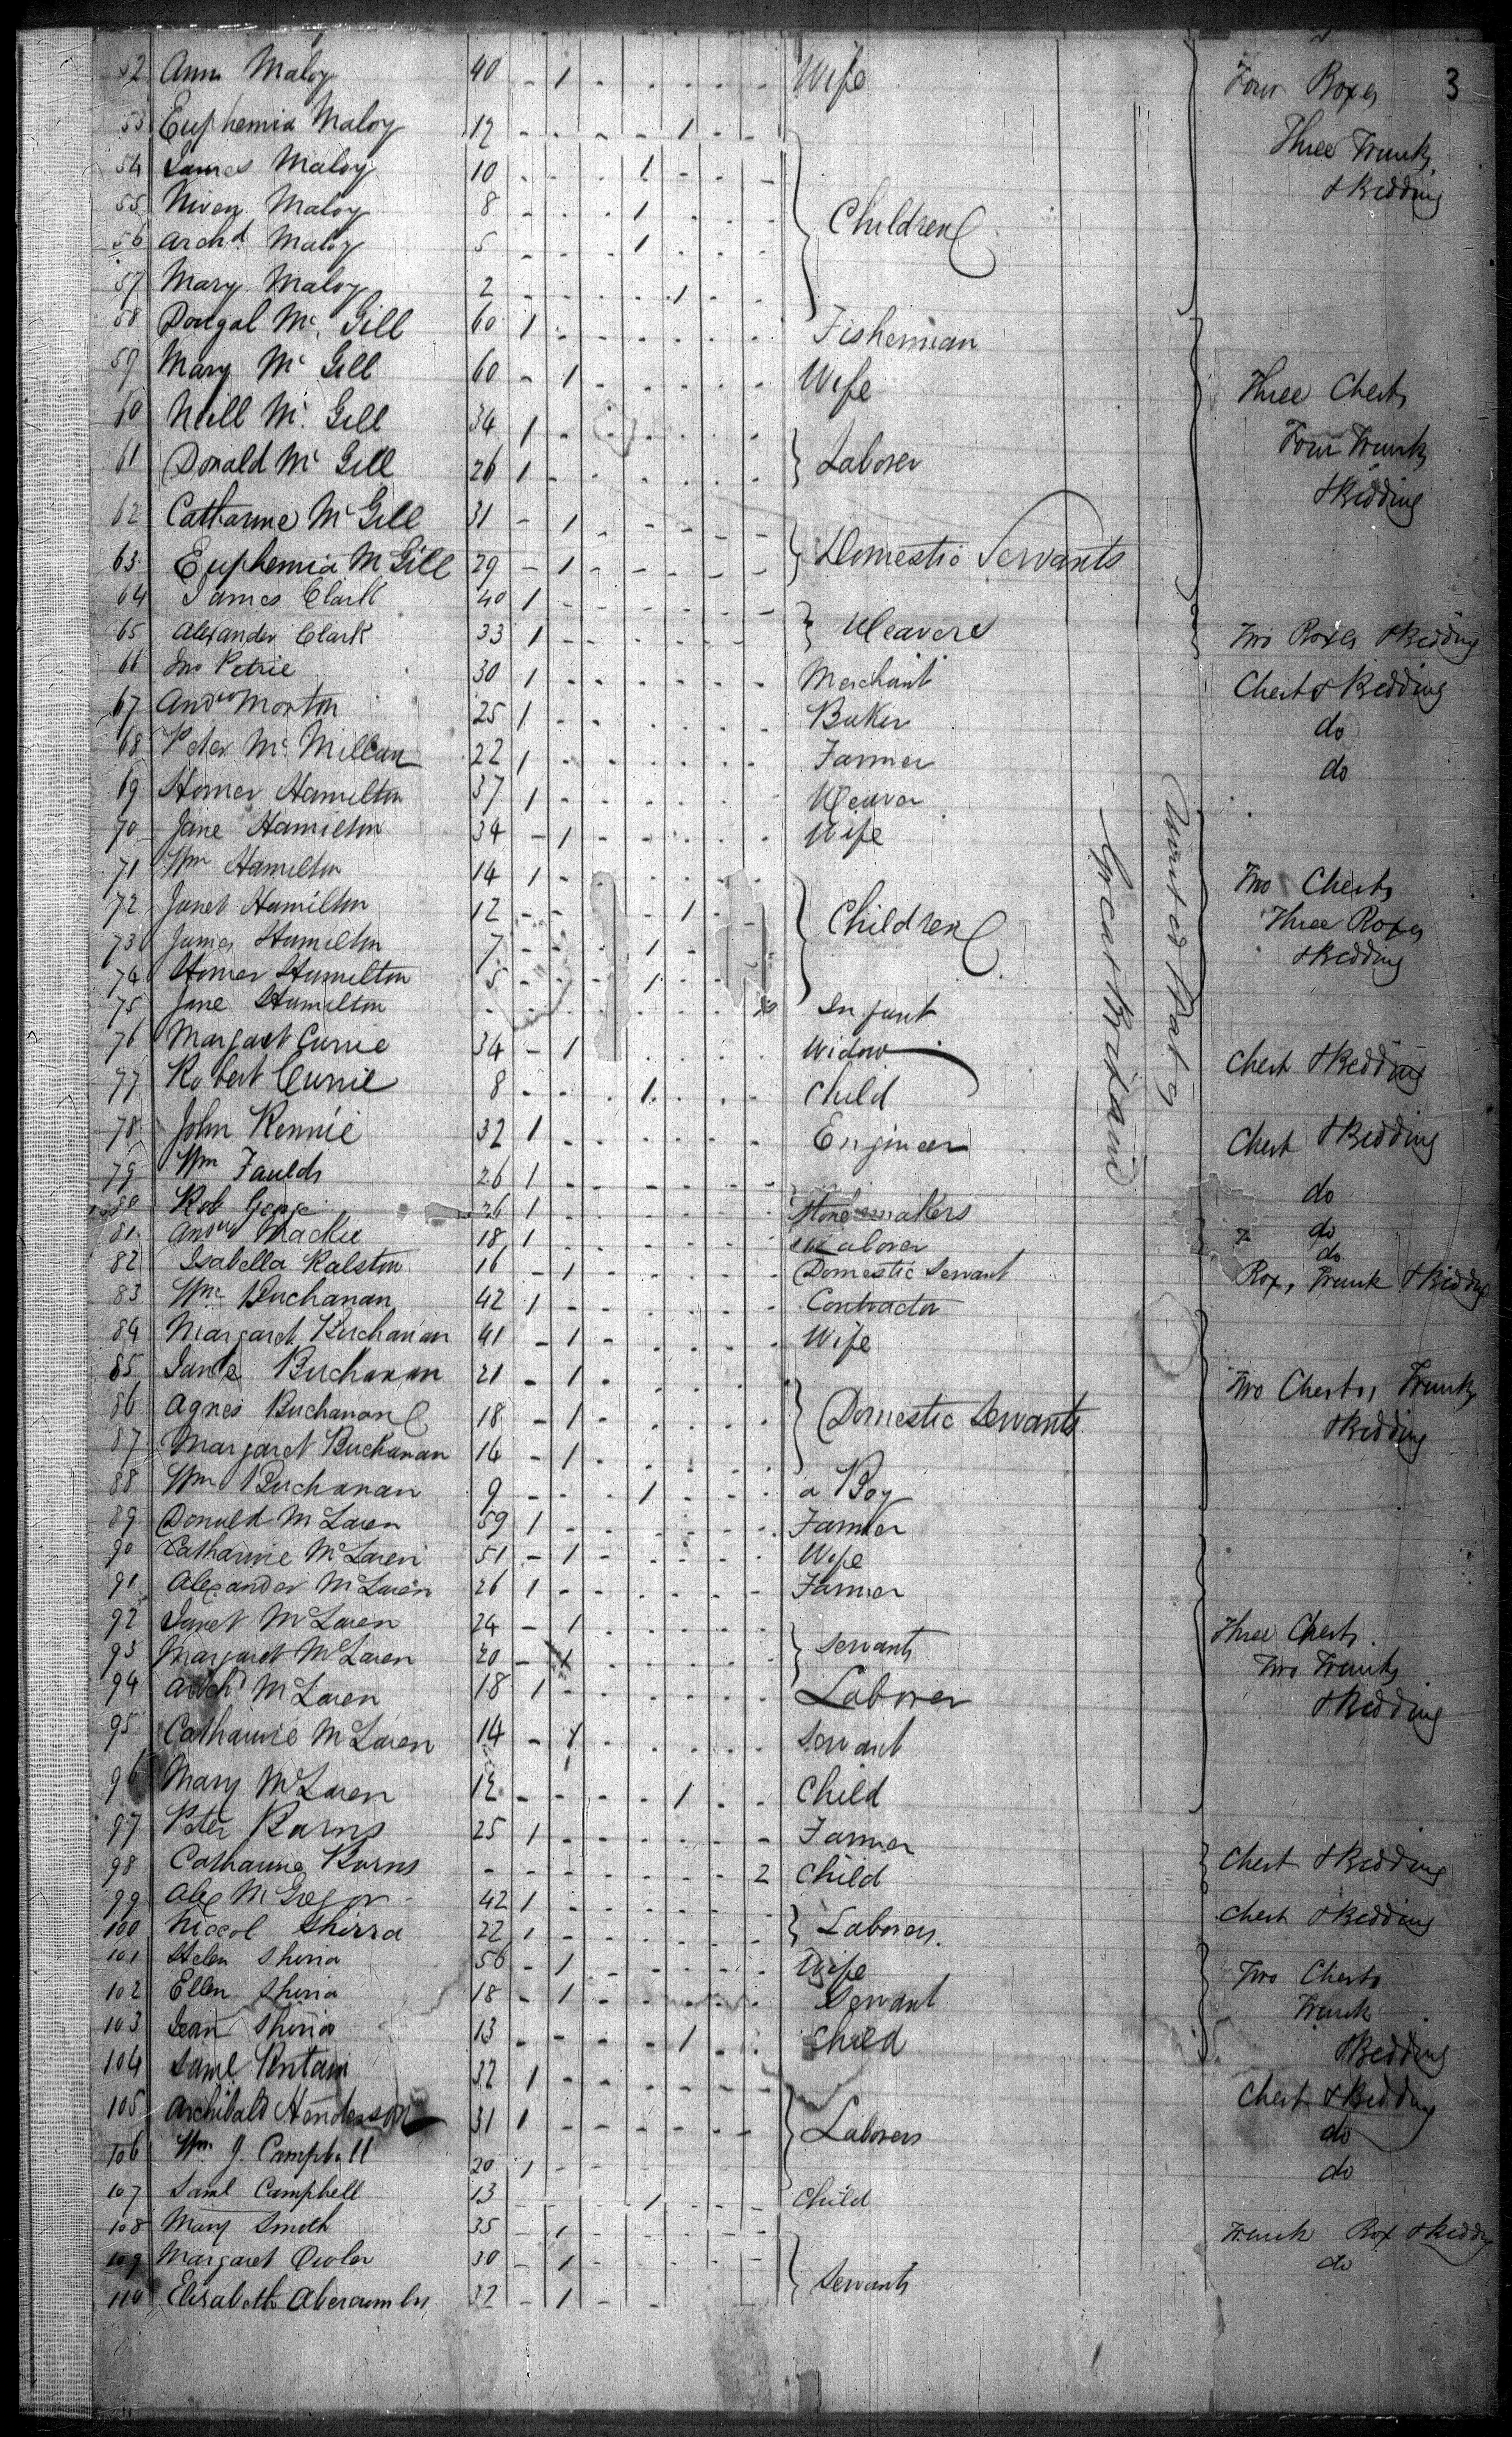 3
52 Ann Maloy 40 - 1 Wife Four Boxes
53 Euphemia Maloy 12 1 Three Trunks
54 James Maloy 10 1 & Bedding
55 Niven Maloy 8 1 Children
56 Archd. Maloy 5 1
57 Mary Maloy 2 1
58 Dougal Mc. Gill 60 1 Fisherman
59 Mary Mc Gill 60 - 1 Wife Three Chests
60 Neill Mc. Gill 34 1 Four Trunks
61 Donald Mc Gill 26 1 Laborer & Bedding
62 Catharine McGill 31 - 1
63 Euphemia McGill 29 - 1 Domestic Servants
64 James Clark 40 1
65 Alexander Clark 33 1 Weavers Two Boxes & Bedding
66 Jno Petrie 30 1 Merchant Chest & Bedding
67 Andw Morton 25 1 Baker do
68 Peter Mc. Millan 22 1 Farmer do
69 Homer Hamilton 37 1 Weaver
70 Jane Hamilton 34 - 1 Wife
71 Wm Hamilton 14 1 Two Chests
72 Janet Hamilton 12 1 Children Three Boxes
73 James Hamilton 7 1 & Bedding
74 Homer Hamilton 5 1
75 Jane Hamilton Infant
76 Margaet Currie 34 - 1 Widow Chest & Bedding
77 Robert Currie 8 1 Child
78 John Rennie 32 1 Engineer Chest & Bedding
79 Wm Faulds 26 1 do
80 Rob 26 1 makers do
81 Andw Mackie 18 1 Laborer do
82 Isabella Ralston 16 - 1 Domestic Servant Box, Trunk & Bedding
83 Wm Buchanan 42 1 Contractor
84 Margaret Buchanan 41 - 1 Wife
85 Jane Buchanan 21 - 1 Two Chests, Trunks
86 Agnes Buchanan 18 - 1 Domestic Servants & Bedding
87 Margaret Buchanan 14 - 1
88 Wm Buchanan 9 1 a Boy
89 Donald McLaren 59 1 Farmer
90 Catharine McLaren 51 - 1 Wife
91 Alexander McLaren 26 1 Farmer
92 Janet McLaren 24 - 1 Three Chests
93 Margaret McLaren 20 - 1 Servants Two Trunks
94 Archd McLaren 18 1 Laborer & Bedding
95 Catharine McLaren 14 - 1 Servant
96 Mary McLaren 12 1 Child
97 Peter Burns 25 1 Farmer
98 Catharine Burns 2 Child Chest & Bedding
99 Alex McGregor 42 1 Chest & Bedding
100 Niccol Shirra 22 1 Laborers
101 Helen Shirra 56 - 1 Wife Two Chests
102 Ellen Shirra 18 - 1 Servant Trunk
103 Jean Shirra 13 1 Child & Bedding
104 Saml 32 1 Chest & Bedding
105 Archibald Henderson 31 1 Laborers do
106 Wm. J. Campbell 20 1 do
107 Saml Campbell 13 1 Child
108 Mary Smith 35 - 1 Trunk Box & Bedding
109 Margaret Owler 30 - 1 Servants do
110 Elisabeth 32 - 1
Great Britain
United States